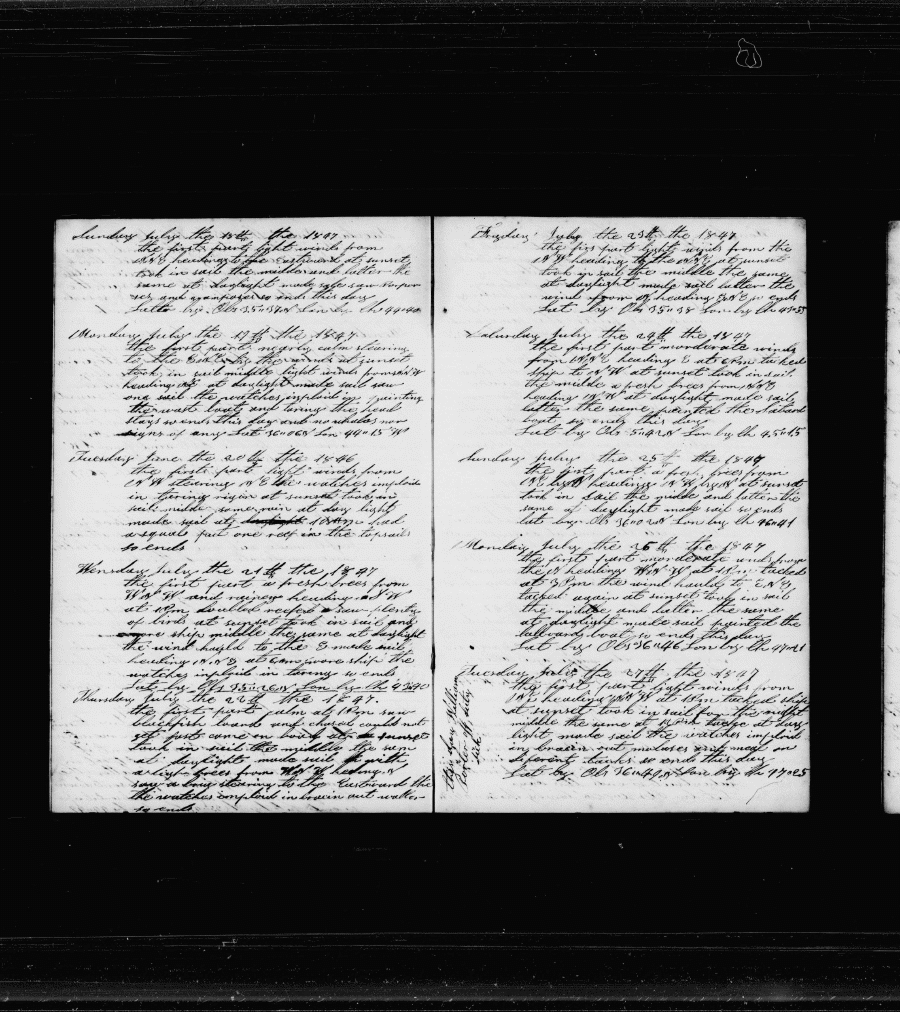 Sunday July the 18th the 1847
the first part light winds from
heading to the Eastward at sunset
took in sail the middle and latter the
same at daylight made sail saw
and so ends this day
Latt by Obs 35=54 N Lon by Ch 44=40
Monday July the 19th the 1847
the first part nearly calm steering
to the by the wind at sunset
took in sail middle light winds from
heading at daylight made sail saw
one sail the watches imploid in painting
the wast boat and taring the head
stays so ends this day and no whales nor
signs of any Lat 36=06 N Lon 44=15 W
Tuesday June the 20th the 1846
the first part light winds from
steering N E the watches imploid
in taring rigin at sunset took in
sail middle some rain at day light
made sail at 10 had
a squal put one reef in the topsails
so ends
Wensday July the 21th the 1847
the first part a fresh brees from
W N W and rainey heading N W
at 1 Pm doubled reefed saw plenty
of birds at sunset took in sail and
wore ship middle the same at daylight
the wind hauld to the E made sail
heading N N E at 6 am wore ship the
watches imploid in taring so ends
Lat by Obs 35=26 N Lon by Ch 43=40
Thursday July the 22th the 1847
the first part calm at 1 Pm saw
blackfish loard and chased could not
get fast came on board at sunset
took in sail the middle the same
at daylight made sail with
a light brees from heading N
saw a brig stearing to the Eastward the
the watches imploid in out water
so ends
Fryday July the 23th the 1847
the firs part light winds from the
heading to the at sunset
took in sail the middle the same
at daylight made sail latter the
wind from N heading so ends
Lat by Obs 35=38 Lon by Ch 43=55
Saturday July the 24th the 1847
the first part monderate winds
from N N E heading E at 6 Pm tacked
ship to N W at sunset took in sail
the middle a fresh brees from
heading N W at daylight made sail
latter the same painted the
boat so ends this day
Lat by Obs Lon by Ch 45=15
Sunday July the 25th the 1847
the first part a fresh brees from
heading N W by N at sunset
took in sail the midde and latter the
same at daylight made sail so ends
lat by Obs 36=02 N Lon by Ch 46=41
Monday July the 26th the 1847
the first part monderate winds from
the heading at 1 Pm tacked
at 3 Pm the wind hauld to E N E
tacked again at sunset took in sail
the middle and latter the same
at daylight made sail painted the
boat so ends this day
Lat by Obs 36=46 Lon by Ch 47=21
Tuesday July the 27th the 1847
the first part light winds from
heading at 1 Pm tacked ship
at sunset took in sail for the night
middle the same at tacked at day
light made sail the watches imploid
in out molases and meal on
diferent tacks so ends this day
Lat by Obs 36=42 N Lon by Ch 47=25
this day William
off duty
sick